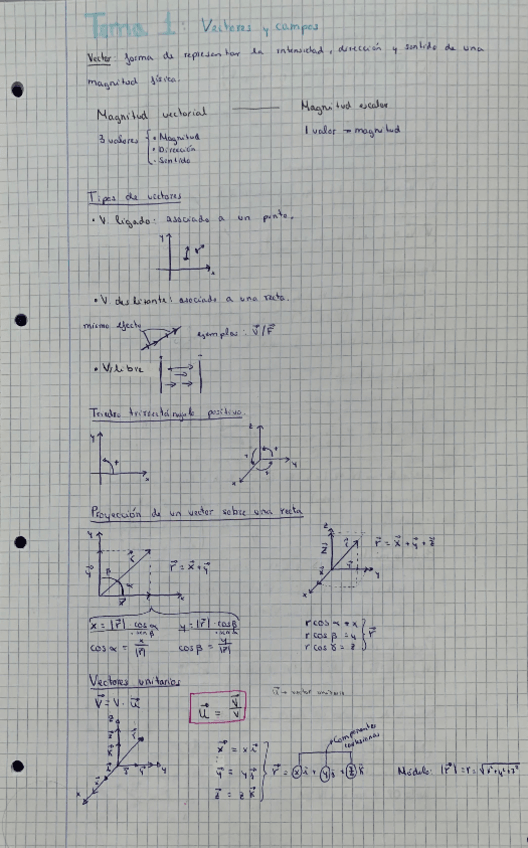 Tema 1: Vectores y campos
Vector: forma de representar la intensidad, dirección y sentido de una
magnitud física.
Magnitud vectorial — Magnitud escalar
3 valores { • Magnitud
• Dirección
• Sentido
1 valor → magnitud
Tipos de vectores
• V. ligado: asociado a un punto.
y
x
• V. deslizante: asociado a una recta.
mismo efecto
ejemplos: v⃗/F⃗
• V. libre
Triedro trirrectángulo positivo.
y
x
z
y
x
Proyección de un vector sobre una recta
y
β
α
x
r⃗ = x⃗ + y⃗
z
y
x
r⃗ = x⃗ + y⃗ + z⃗
x = |r⃗| · cos α
· sen β
y = |r⃗| · cos β
· sen α
cos α = x/|r⃗|
cos β = y/|r⃗|
r cos α = x
r cos β = y
r cos γ = z
} r⃗
Vectores unitarios
V⃗ = V · u⃗
u⃗ = v⃗/v
u⃗ → vector unitario
z
y
x
Componentes
cartesianas
x⃗ = x i⃗
y⃗ = y j⃗
z⃗ = z k⃗
} r⃗ = x i⃗ + y j⃗ + z k⃗
Módulo: |r⃗| = r = √x²+y²+z²